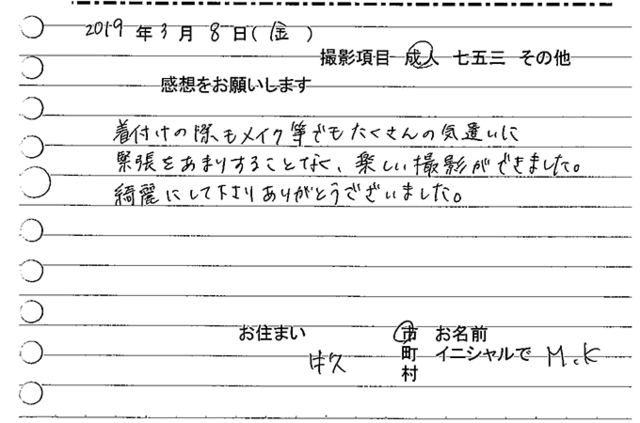 2019年3月8日(金)
撮影項目 成人 七五三 その他
感想をお願いします
着付けの際もメイク等でもたくさんの気遣いに
緊張をあまりすることなく、楽しい撮影ができました。
綺麗にして下さりありがとうございました。
お住まい 牛久 市 お名前
町 イニシャルで M.K
村